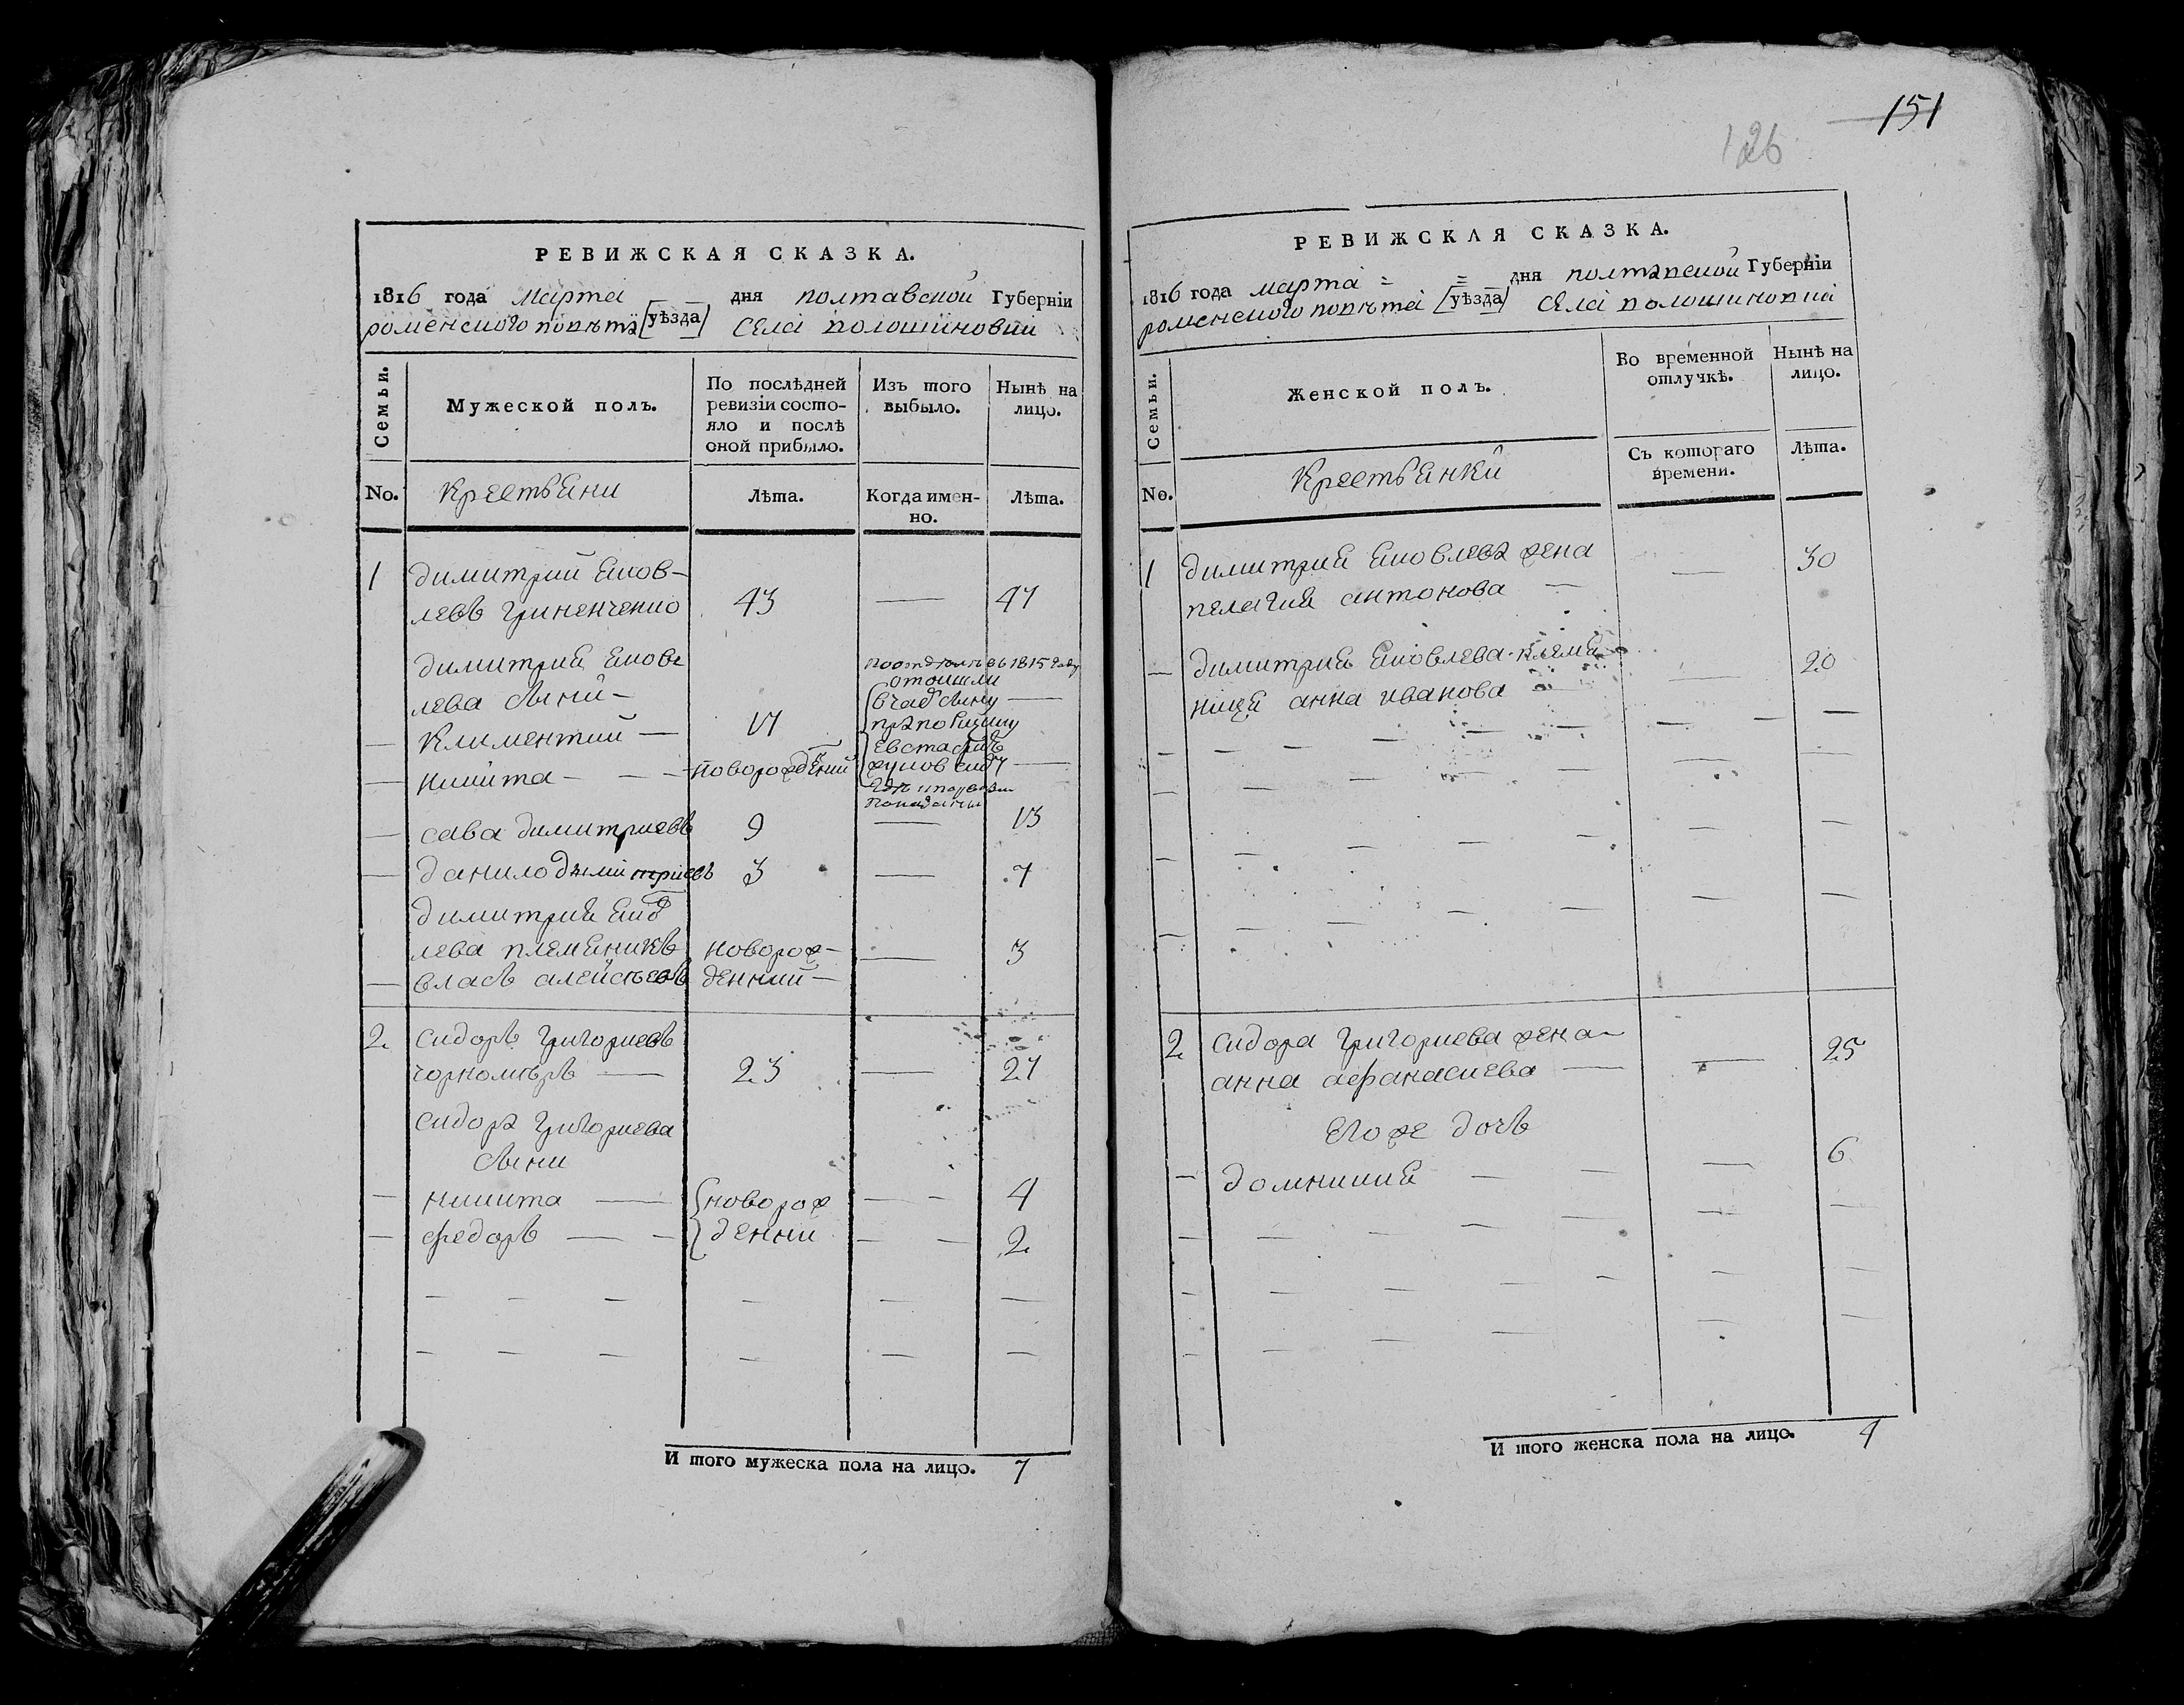 РЕВИЖСКАЯ СКАЗКА.
1816 года марта дня полтавской Губерніи
роменского повѣта [уѣзда] села волошиновки
Семьи.
Мужеской полъ.
По послѣдней ревизіи состо-
яло и послѣ
оной прибыло.
Изъ того
выбыло.
Нынѣ на
лицо.
No.
крестьяни
Лѣта.
Когда имен-
но.
Лѣта.
1 димитрий яков-
левъ гриненченко 43 — 47
димитрия яков
лева сыни —
— климентий — 17
— никита — — — новорожденний
1815
отошли
— сава димитриевъ 9 — 13
— данило димитриевъ 3 — 7
димитрия яков
лева племяникъ новорож- — 3
— власъ алексѣевъ денний —
2 сидоръ григориевъ
чорномѣръ — 23 — 27
сидора григориева
сыни
— никита — новорож — — 4
— федоръ — — денни — — 2
И того мужеска пола на лицо. 7
151
126
РЕВИЖСКАЯ СКАЗКА.
1816 года марта = = дня полтавской Губерніи
роменского повѣта [уѣзда] села волошиновки
Семьи.
Женской полъ.
Во временной
отлучкѣ.
Нынѣ на
лицо.
No.
крестьянки
Съ котораго
времени.
Лѣта.
1 димитрия яковлева жена — 30
пелагия антонова —
— димитрия яковлева племя — 20
ница анна иванова —
2 сидора григориева жена — — 25
анна афанасиева —
его же дочь
— домникия — — — 6
И того женска пола на лицо. 4